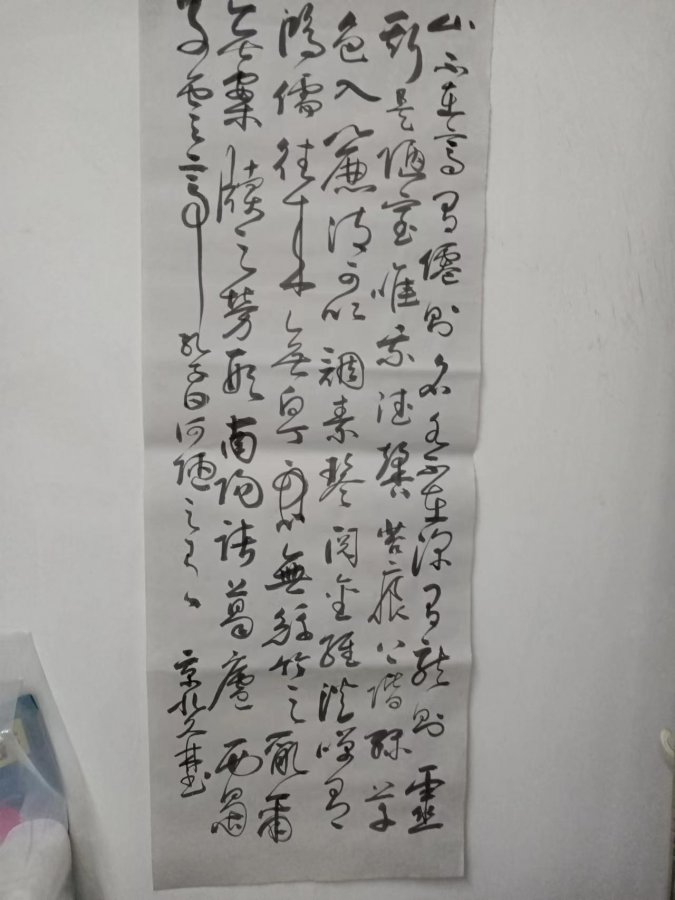 山不在高有僊則名水不在深有龍則靈
斯是陋室唯吾德馨苔痕上階緑草
色入簾清可以調素琴閱金經談有
鴻儒往来無白丁無絲竹之亂耳
無案牘之勞形南陽諸葛廬西蜀
子雲之亭孔子曰何陋之有